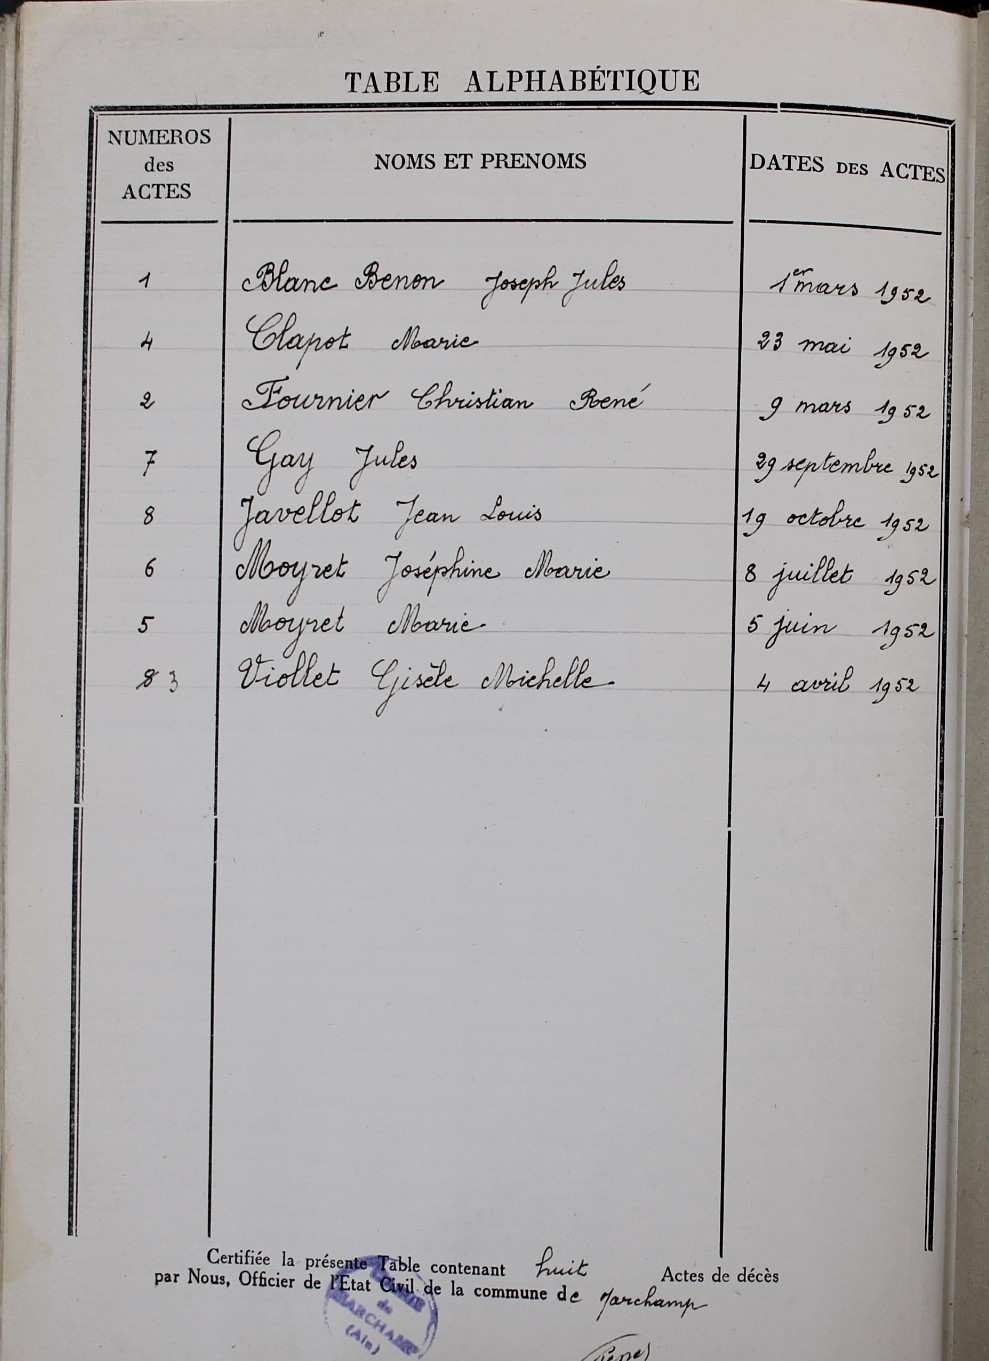 TABLE ALPHABÉTIQUE
NUMEROS des ACTES NOMS ET PRENOMS DATES DES ACTES
1 Blanc Benon Joseph Jules 1er mars 1952
4 Clapot Marie 23 mai 1952
2 Fournier Christian René 9 mars 1952
7 Gay Jules 29 septembre 1952
8 Javellot Jean Louis 19 octobre 1952
6 Moyret Joséphine Marie 8 juillet 1952
5 Moyret Marie 5 juin 1952
8 3 Viollet Gisèle Michelle 4 avril 1952
Certifiée la présente Table contenant huit Actes de décès
par Nous, Officier de l'Etat Civil de la commune de Marchamp
MAIRIE
de
MARCHAMP
(Ain)